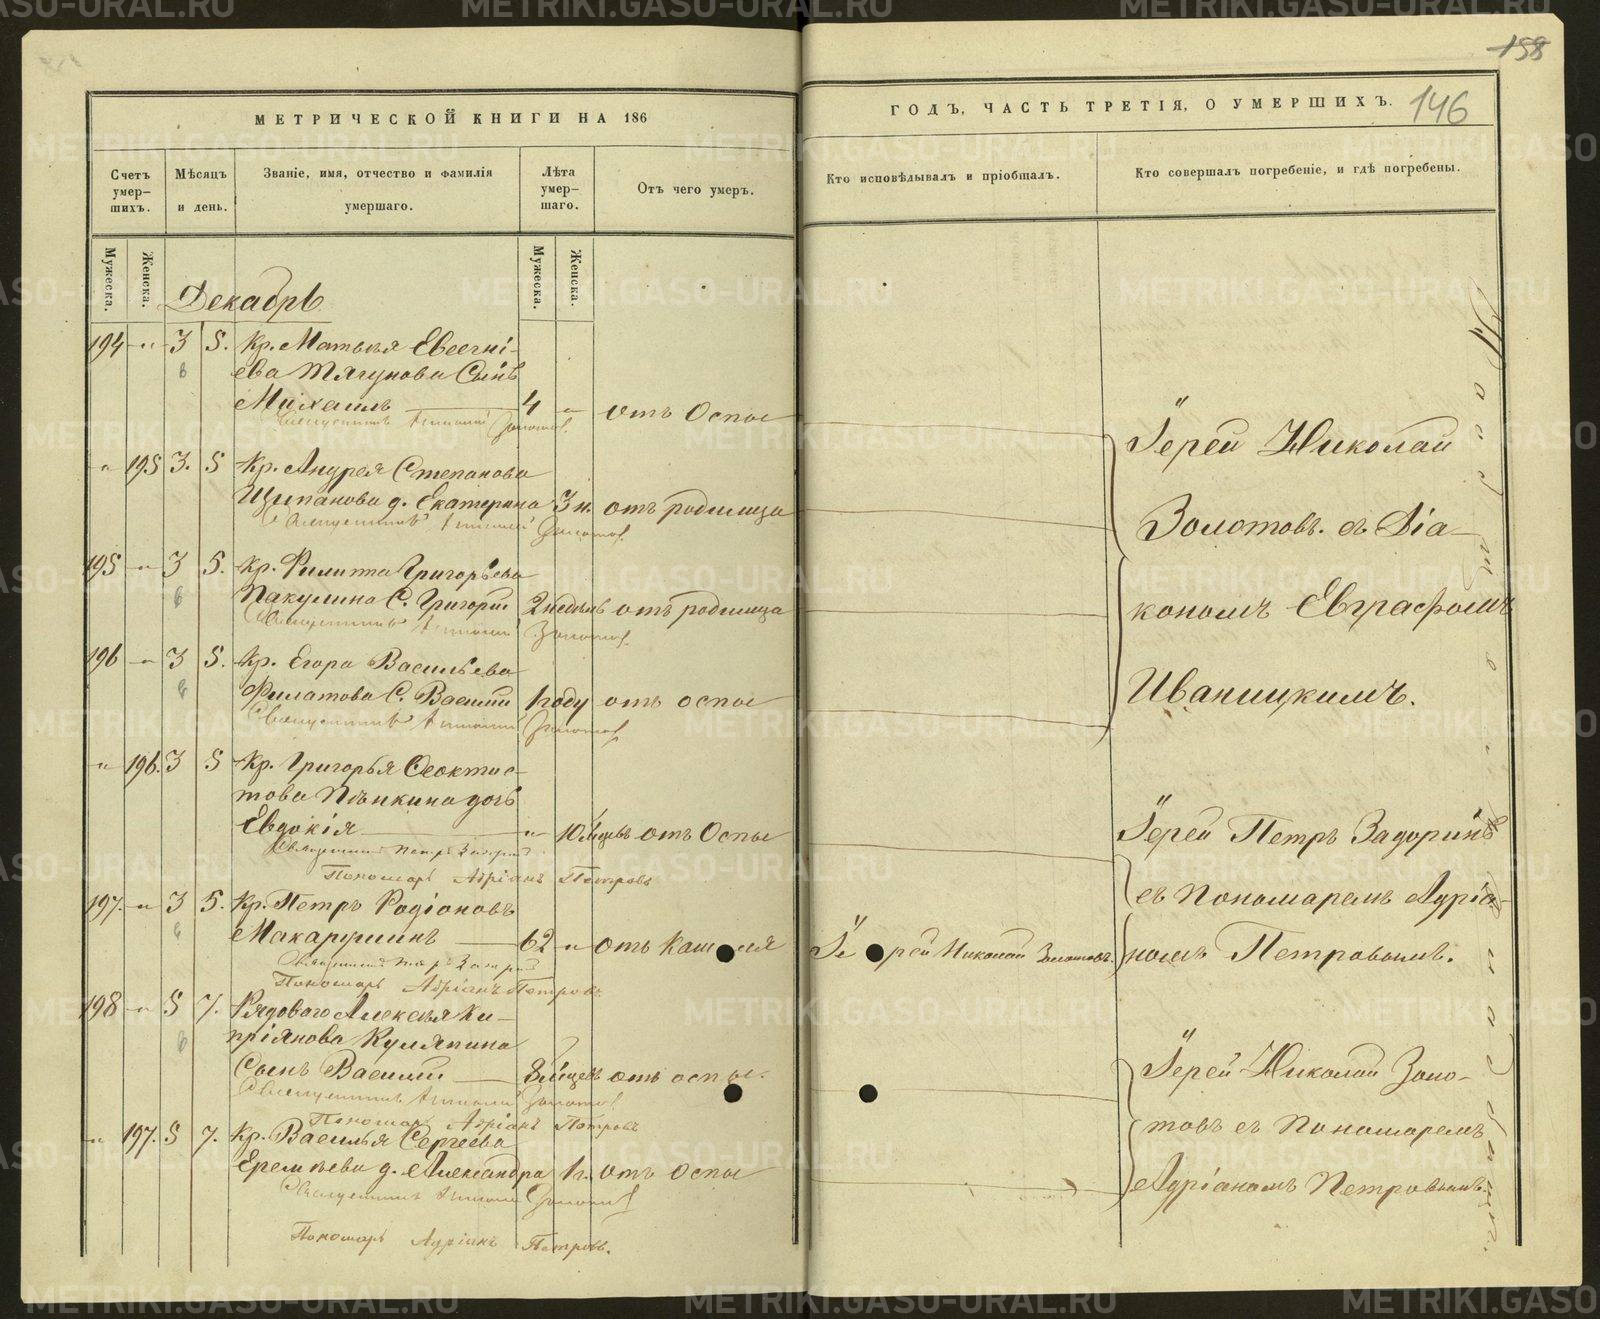 158
146
МЕТРИЧЕСКОЙ КНИГИ НА 186
ГОДЪ, ЧАСТЬ ТРЕТІЯ, О УМЕРШИХЪ.
Счетъ умер-шихъ.
Мѣсяцъ и день.
Званіе, имя, отчество и фамилія умершаго.
Лѣта умер-шаго.
Отъ чего умеръ.
Кто исповѣдывалъ и пріобщалъ.
Кто совершалъ погребеніе, и гдѣ погребены.
Мужеска.
Женска.
Мужеска.
Женска.
Декабрь
194 " 3 5. Кр. Матвѣя Евсегні-
ева Тягунова Сынъ
Михаилъ 4 " отъ Оспы
" 195 3. 5 Кр. Андрея Степанова
Щипанова д. Екатерина 3 н. отъ родимца
195 " 3 5. Кр. Филиппа Григорьева
Пакулина С. Григорій 2 недѣль отъ родимца
196 " 3 5. Кр. Егора Васильева
Филатова С. Василій 1 году отъ оспы
Іерей Николай
Золотовъ съ Діа-
кономъ Евграфомъ
Иваницкимъ.
" 196. 3 5 Кр. Григорья Ѳеоктис-
това Пѣнкина дочь
Евдокія " 10 м̃цевъ отъ Оспы
Пономарь Адріанъ Петровъ
197. " 3 5. Кр. Петръ Родіоновъ
Макарушинъ 62 " отъ Кашля Іерей Николай Золотовъ
Пономарь Адріанъ Петровъ
Іерей Петръ Задоринъ
съ Пономаремъ Адріа-
номъ Петровымъ.
198 " 5 7. Рядоваго Алексѣя Ки-
пріянова Куляпина
Сынъ Василій 8 м̃цевъ отъ оспы.
Пономарь Адріанъ Петровъ
" 197. 5 7. Кр. Василья Сергѣева
Еремѣева д. Александра 1 г. отъ Оспы
Пономарь Адріанъ Петровъ.
Іерей Николай Золо-
товъ съ Пономаремъ
Адріаномъ Петровымъ.
METRIKI.GASO-URAL.RU